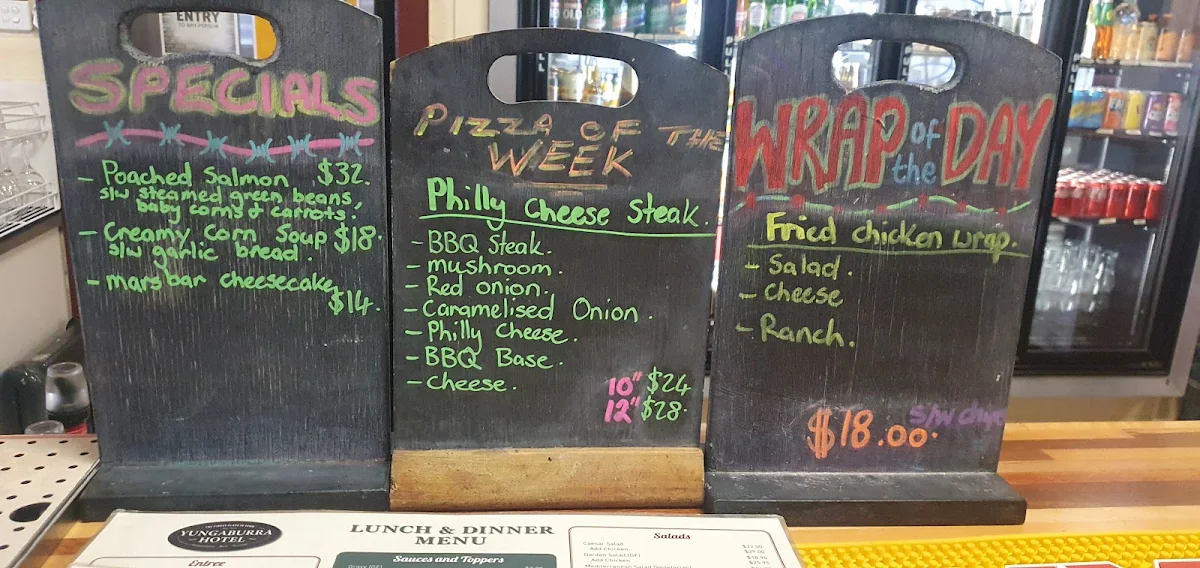 ENTRY
SPECIALS
- Poached Salmon $32.
s/w steamed green beans,
baby corns & carrots.
- Creamy Corn Soup $18.
s/w garlic bread.
- mars bar cheesecake
$14.
PIZZA OF THE
WEEK
Philly Cheese Steak.
- BBQ Steak.
- mushroom.
- Red onion.
- Caramelised Onion.
- Philly Cheese.
- BBQ Base.
- cheese.
10" $24
12" $28.
WRAP of the DAY
Fried chicken wrap.
- Salad.
- Cheese
- Ranch.
s/w chips
$18.00.
YUNGABURRA
HOTEL
Entree
LUNCH & DINNER
MENU
Sauces and Toppers
Salads
Caesar Salad
Add Chicken
Garden Salad (GF)
Add Chicken